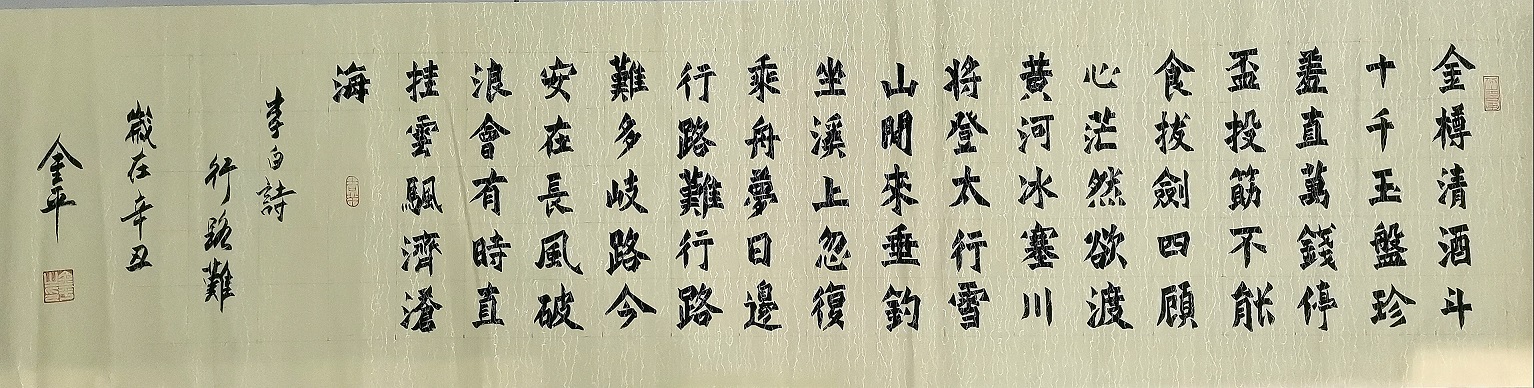 金樽清酒斗
十千玉盤珍
羞直萬錢停
盃投筯不能
食拔劍四顧
心茫然欲渡
黃河冰塞川
将登太行雪
山閒來垂釣
坐溪上忽復
乘舟夢日邊
行路難行路
難多岐路今
安在長風破
浪會有時直
挂雲颿濟滄
海
李白詩
行路難
歲在辛丑
金平